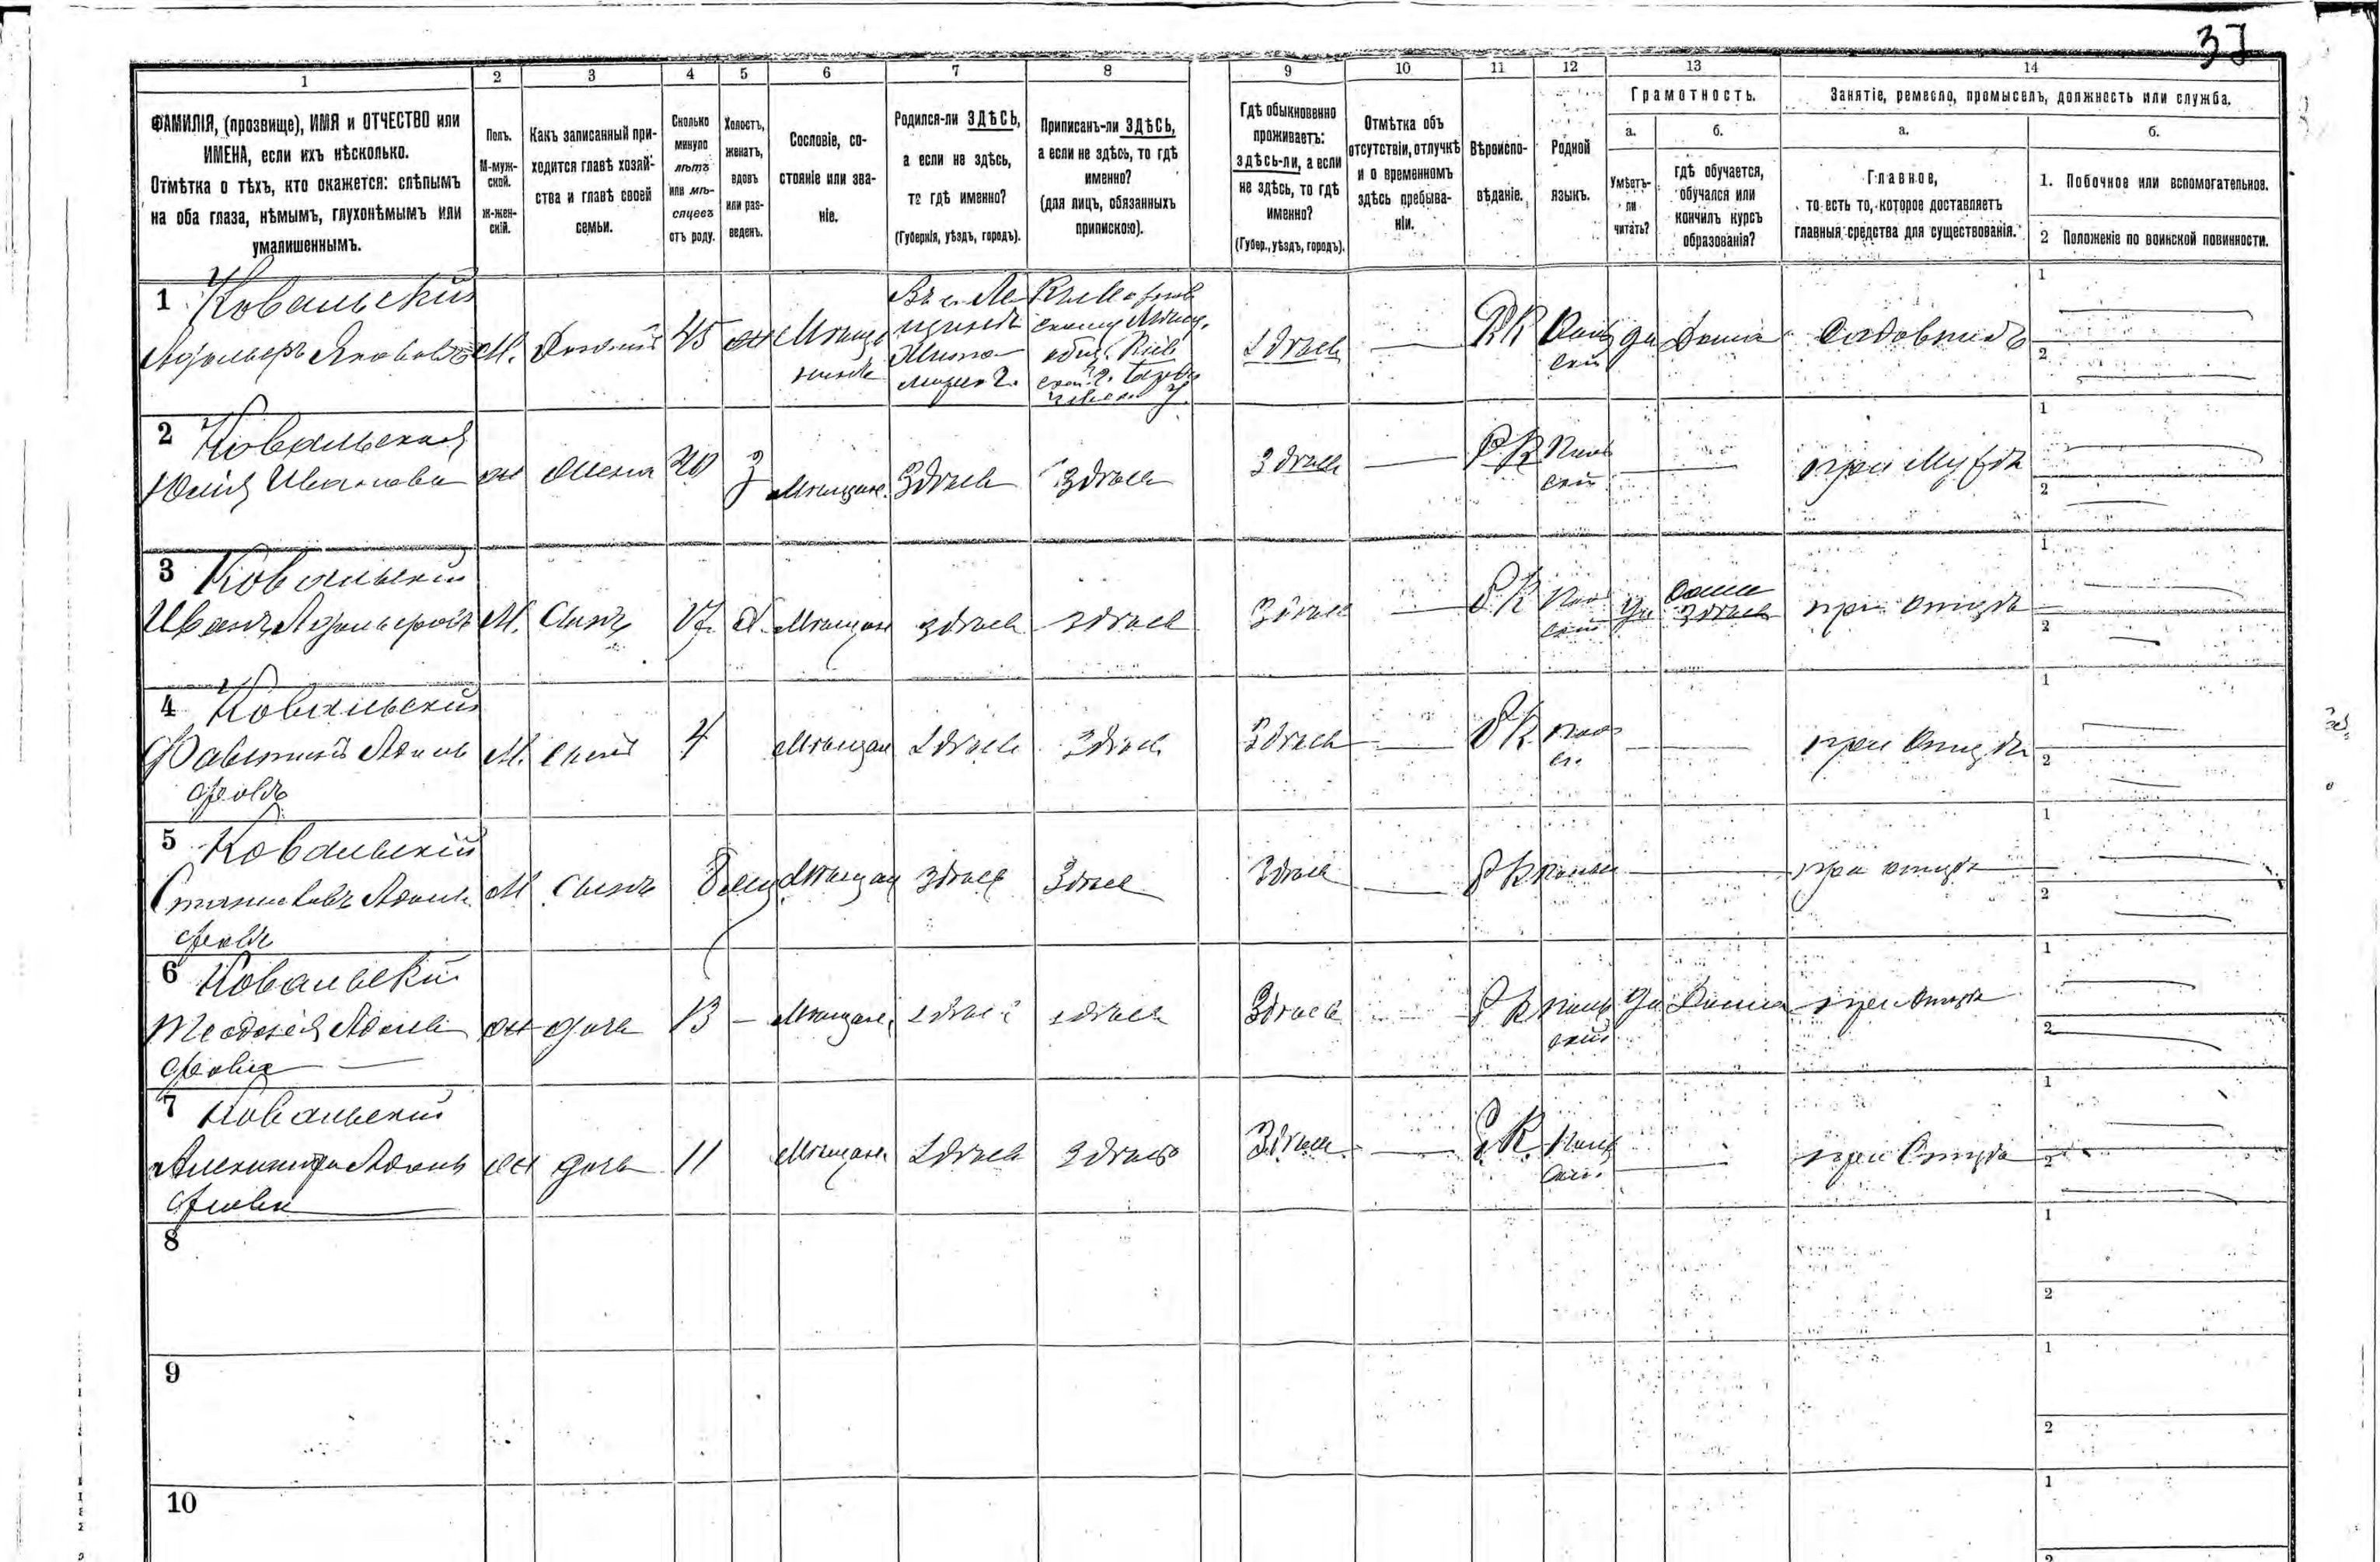 37
1 2 3 4 5 6 7 8 9 10 11 12 13 14
ФАМИЛІЯ, (прозвище), ИМЯ и ОТЧЕСТВО или
ИМЕНА, если ихъ нѣсколько.
Отмѣтка о тѣхъ, кто окажется: слѣпымъ
на оба глаза, нѣмымъ, глухонѣмымъ или
умалишеннымъ.
Полъ.
М-муж-
ской.
Ж-жен-
скій.
Какъ записанный при-
ходится главѣ хозяй-
ства и главѣ своей
семьи.
Сколько
минуло
лѣтъ
или мѣ-
сяцевъ
отъ роду.
Холостъ,
женатъ,
вдовъ
или раз-
веденъ.
Сословіе, со-
стояніе или зва-
ніе.
Родился-ли ЗДѢСЬ,
а если не здѣсь,
то гдѣ именно?
(Губернія, уѣздъ, городъ).
Приписанъ-ли ЗДѢСЬ,
а если не здѣсь, то гдѣ
именно?
(для лицъ, обязанныхъ
припискою).
Гдѣ обыкновенно
проживаетъ:
здѣсь-ли, а если
не здѣсь, то гдѣ
именно?
(Губер., уѣздъ, городъ).
Отмѣтка объ
отсутствіи, отлучкѣ
и о временномъ
здѣсь пребыва-
ніи.
Вѣроиспо-
вѣданіе.
Родной
языкъ.
Грамотность.
а.
Умѣетъ-
ли
читать?
б.
гдѣ обучается,
обучался или
кончилъ курсъ
образованія?
Занятіе, ремесло, промыселъ, должность или служба.
а.
Главное,
то есть то, которое доставляетъ
главныя средства для существованія.
б.
1. Побочное или вспомогательное.
2 Положеніе по воинской повинности.
1 Ковальскій
Адольфъ Яковлевъ М. 45 Р К Поль да Дома Садовникъ
скій
1
2
2 Ковальская
Юлія Иванова ж жена 40 З Мѣщан. Здѣсь Здѣсь Здѣсь Р К Поль при Мужѣ
скій
1
2
3 Ковальскій
Иванъ Адольфовъ М. Сынъ 17 Х. Мѣщан здѣсь здѣсь Здѣсь Р К Поль да Дома здѣсь при Отцѣ
скій
1
2
4 Ковальскій
Адоль М. сынъ 4 Мѣщан Здѣсь Здѣсь Здѣсь Р К Поль при Отцѣ
фовъ
1
2
5 Ковальскій
Станиславъ Адоль М Сынъ 8 Мѣщан Здѣсь Здѣсь Здѣсь Р К Польс при отцѣ
фовъ
1
2
6 Ковальскій
Теодозія Адоль ж дочь 13 Мѣщан. здѣсь здѣсь Здѣсь Р К Поль да Дома при Отцѣ
фовна скій
1
2
7 Ковальскій
Александра Адоль ж дочь 11 Мѣщан. Здѣсь Здѣсь Здѣсь Р К. Поль при Отцѣ
фовна скій
1
2
8
1
2
9
1
2
10
1
2